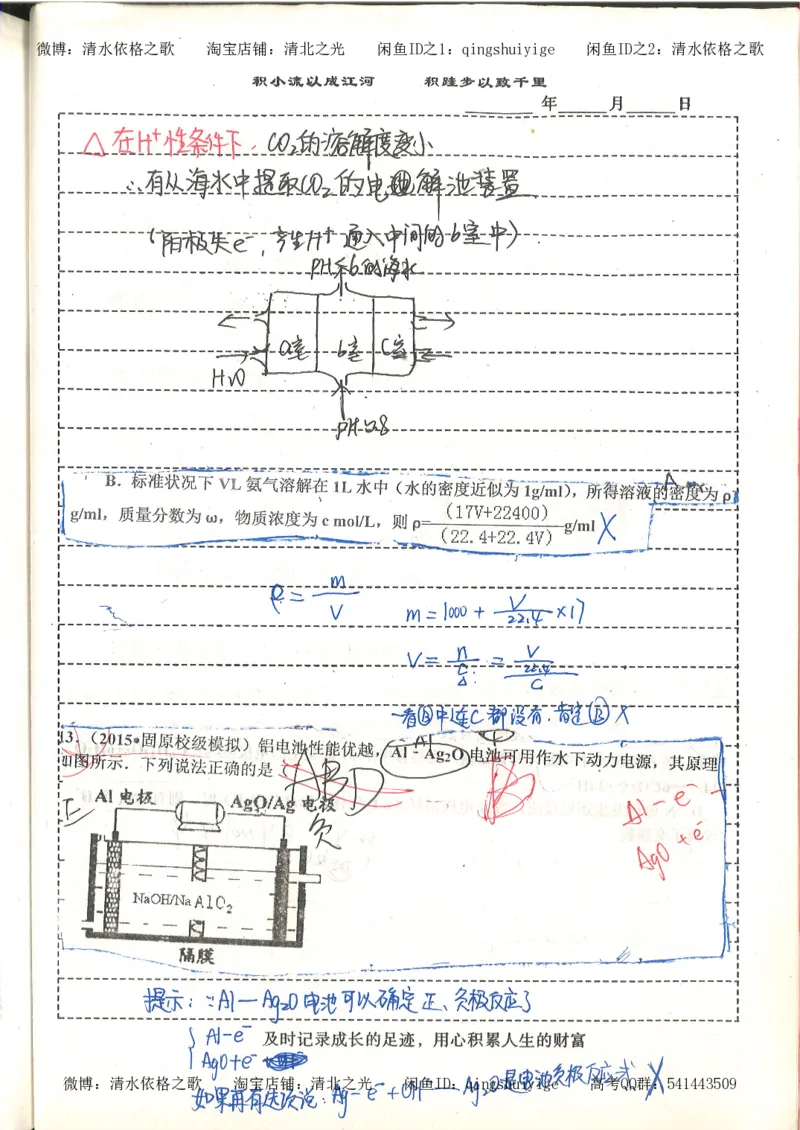 微博：清水依格之歌 淘宝店铺：清北之光 闲鱼ID之1：qingshuiyige 闲鱼ID之2：清水依格之歌
积小流以成江河 积跬步以致千里
年 月 日
△在H⁺性条件下，CO₂的溶解度变小
∴有从海水中提取CO₂的电解池装置
（阳极失e⁻，产生H⁺通入中间的b室中）
pH<6的海水
a室 b室 C室
H₂O
pH≈8
B．标准状况下 VL 氨气溶解在 1L 水中（水的密度近似为 1g/ml），所得溶液的密度为 ρ
g/ml，质量分数为 ω，物质浓度为 c mol/L，则 ρ=(17V+22400)/(22.4+22.4V) g/ml ×
ρ = m/V
m = 1000 + V/22.4 ×17
V = n/C = V/22.4 / C
一看Ⓑ中连C都没有，肯定Ⓑ×
13．（2015•固原校级模拟）铝电池性能优越，Al－Ag₂O 电池可用作水下动力电源，其原理
如图所示．下列说法正确的是
ABD
Al－e⁻
AgO＋e⁻
正 Al 电极 AgO/Ag 电极
负
NaOH/NaAlO₂
隔膜
提示：∵Al－Ag₂O电池可以确定正、负极反应了
Al－e⁻
及时记录成长的足迹，用心积累人生的财富
AgO+e⁻
微博：清水依格之歌 淘宝店铺：清北之光 闲鱼ID：qingshuiyige 高考QQ群：541443509
如果再有选项说：Ag－e⁻＋OH⁻—Ag₂O是电池负极反应式 ×